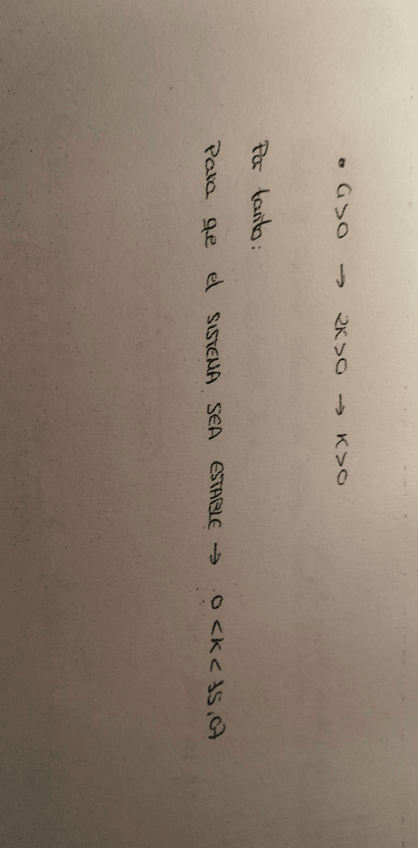 • G>0 → 2K>0 → K>0
Por tanto:
Para que el SISTEMA SEA ESTABLE → 0 < K < 15,07